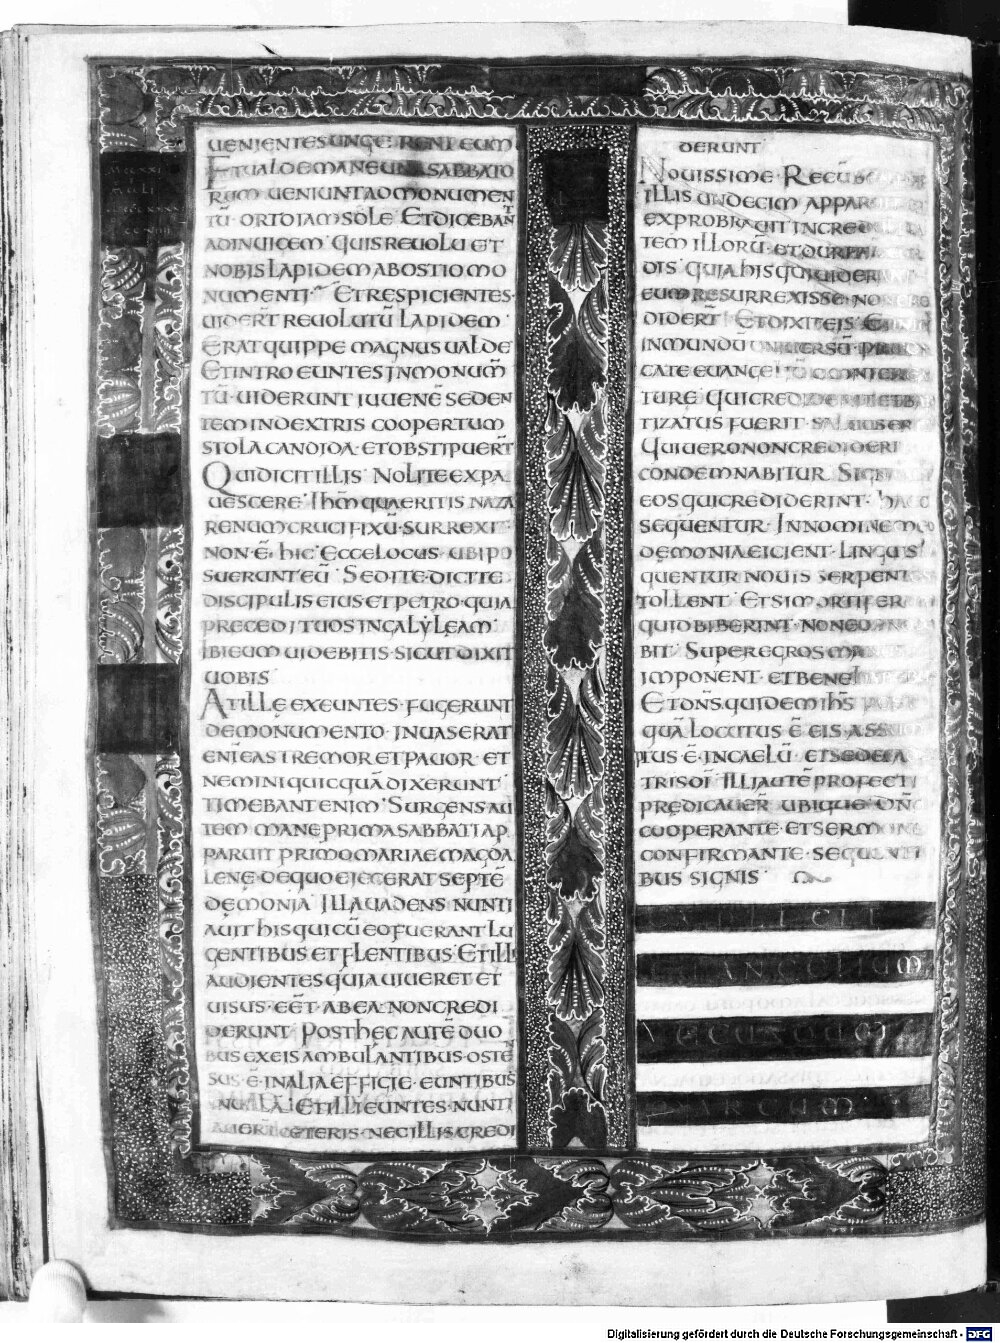 UENIENTES UNGERENT EUM
ET UALDE MANE UNA SABBATO
RUM UENIUNT AD MONUMEN
TŪ· ORTO IAM SOLE ET DICEBANT
AD INUICEM QUIS REUOLUET
NOBIS LAPIDEM AB OSTIO MO
NUMENTI ET RESPICIENTES·
UIDERT̄ REUOLUTŪ LAPIDEM
ERAT QUIPPE MAGNUS UALDE
ET INTROEUNTES IN MONUM̄
TŪ· UIDERUNT IUUENĒ SEDEN
TEM IN DEXTRIS COOPERTUM
STOLA CANDIDA· ET OBSTIPUERT̄
QUI DICIT ILLIS NOLITE EXPA
UESCERE· IHM̄ QUAERITIS NAZA
RENUM CRUCIFIXŪ· SURREXIT·
NON Ē HIC· ECCE LOCUS· UBI PO
SUERUNT EŪ SED ITE· DICITE
DISCIPULIS EIUS ET PETRO· QUIA
PRECEDIT UOS IN GALYLEAM
IBI EUM UIDEBITIS· SICUT DIXIT
UOBIS
AT ILLE EXEUNTES· FUGERUNT
DE MONUMENTO· INUASERAT
ENĪ EAS TREMOR ET PAUOR· ET
NEMINI QUICQUĀ DIXERUNT
TIMEBANT ENIM· SURGENS AU
TEM MANE PRIMA SABBATI AP
PARUIT PRIMO MARIAE MAGDA
LENE· DE QUO EIECERAT SEPTĒ
DĘMONIA ILLA UADENS NUNTI
AUIT HIS QUI CŪ EO FUERANT LU
GENTIBUS ET FLENTIBUS· ET ILLI
AUDIENTES QUIA UIUERET ET
UISUS· EĒT AB EA· NON CREDI
DERUNT POST HEC AUTĒ DUO
BUS EX EIS AMBULANTIBUS· OSTEN
SUS· Ē IN ALIA EFFIGIE· EUNTIBUS
IN UILLĀ ET ILLI EUNTES NUNTI
AUERT̄ CETERIS· NEC ILLIS CREDI
DERUNT
NOUISSIME· RECŪB
ILLIS UNDECIM APPAR
EXPROBRAUIT INCRED
TEM ILLORŪ· ET DURITIA
DIS QUIA HIS QUI UIDER
EUM RESURREXISSE· NON
DIDERT̄ ET DIXIT EIS
IN MUNDU UNIUERSŪ· PREDI
CATE EUANGELIŪ OMNI CREA
TURE QUI CREDIDERIT ET BAP
TIZATUS FUERIT· SALUUS ER
QUI UERO NON CREDIDERI
CONDEMNABITUR SIGN
EOS QUI CREDIDERINT· HAEC
SEQUENTUR· IN NOMINE MEO
DĘMONIA EICIENT· LINGUIS
QUENTUR NOUIS SERPENT
TOLLENT· ET SI MORTIFER
QUID BIBERINT· NON EO
BIT· SUPER EGROS MA
IMPONENT· ET BENE
ET DN̄S QUIDEM IHS̄
QUĀ LOCUTUS Ē EIS ASSUM
TUS· Ē· IN CAELŪ· ET SEDET A
TRIS DĪ ILLI AUTĒ PROFECTI
PRĘDICAUER̄ UBIQUE DN̄O
COOPERANTE· ET SERMONE
CONFIRMANTE· SEQUENTI
BUS SIGNIS
EXPLICIT
EUANGELIUM
SECUNDUM
MARCUM
Digitalisierung gefördert durch die Deutsche Forschungsgemeinschaft - DFG